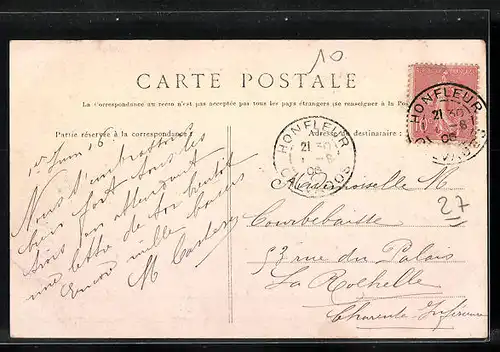 10
CARTE POSTALE
La Correspondance au recto n'est pas acceptée par tous les pays étrangers (se renseigner à la Poste
Partie réservée à la correspondance:
Adresse du destinataire:
HONFLEUR
21 30
-8
06
CALVADOS
HONFLEUR
21 30
-8
06
CALVADOS
10
Nous t'embrassons
bien fort tous les
trois en attendant
une lettre de toi bientôt
Encore mille baisers
M
Mademoiselle M.
27
53 rue du Palais
La Rochelle
Charente Inférieure